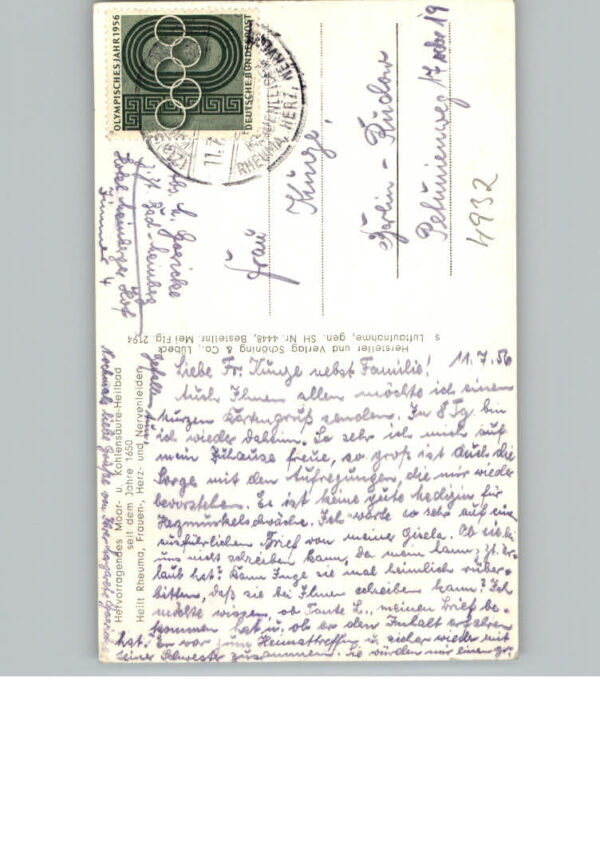 OLYMPISCHES JAHR 1956
DEUTSCHE BUNDESPOST
11.7
RHEUMA, HERZ, NERVEN
FRAUENLEIDEN
Abs. L. Goericke
z. Zt. Bad-Meinberg
Hotel Meinberger Hof
Zimmer 4
Frau
Kunze,
Berlin-Rudow
Petunienweg 17 oder 19
4932
Hersteller und Verlag Schöning & Co., Lübeck
s Luftaufnahme, gen. SH Nr. 4448, Bestellnr Mei Flg. 2194
Hervorragendes Moor- u. Kohlensäure-Heilbad
seit dem Jahre 1650
Heilt Rheuma, Frauen-, Herz- und Nervenleiden
11.7.56
Liebe Fr. Kunze nebst Familie!
Auch Ihnen allen möchte ich einen
kurzen Kartengruß senden. In 8 Tg. bin
ich wieder daheim. So sehr ich mich auf
mein Zuhause freue, so groß ist auch die
Sorge mit den Aufregungen, die mir wieder
bevorstehen. Es ist keine gute Medizin für
Herzmuskelschwäche. Ich warte so sehr auf ein
ausführlichen Brief von meiner Gisela. Ob sie bei
uns nicht schreiben kann, da mein Mann
laubt hat? Kann Inge sie mal heimlich rüber-
bitten, daß sie bei Ihnen schreiben kann? Ich
möchte wissen, ob Tante L., meinen Brief be-
kommen hat u. ob er den Inhalt erfahren
hat. Er war zum Heimattreffen u. sicher wieder mit
seiner Schwester zusammen. Sie würden mir einen gr.
Gefallen tun.
Nochmals liebe Grüße von Ihrer